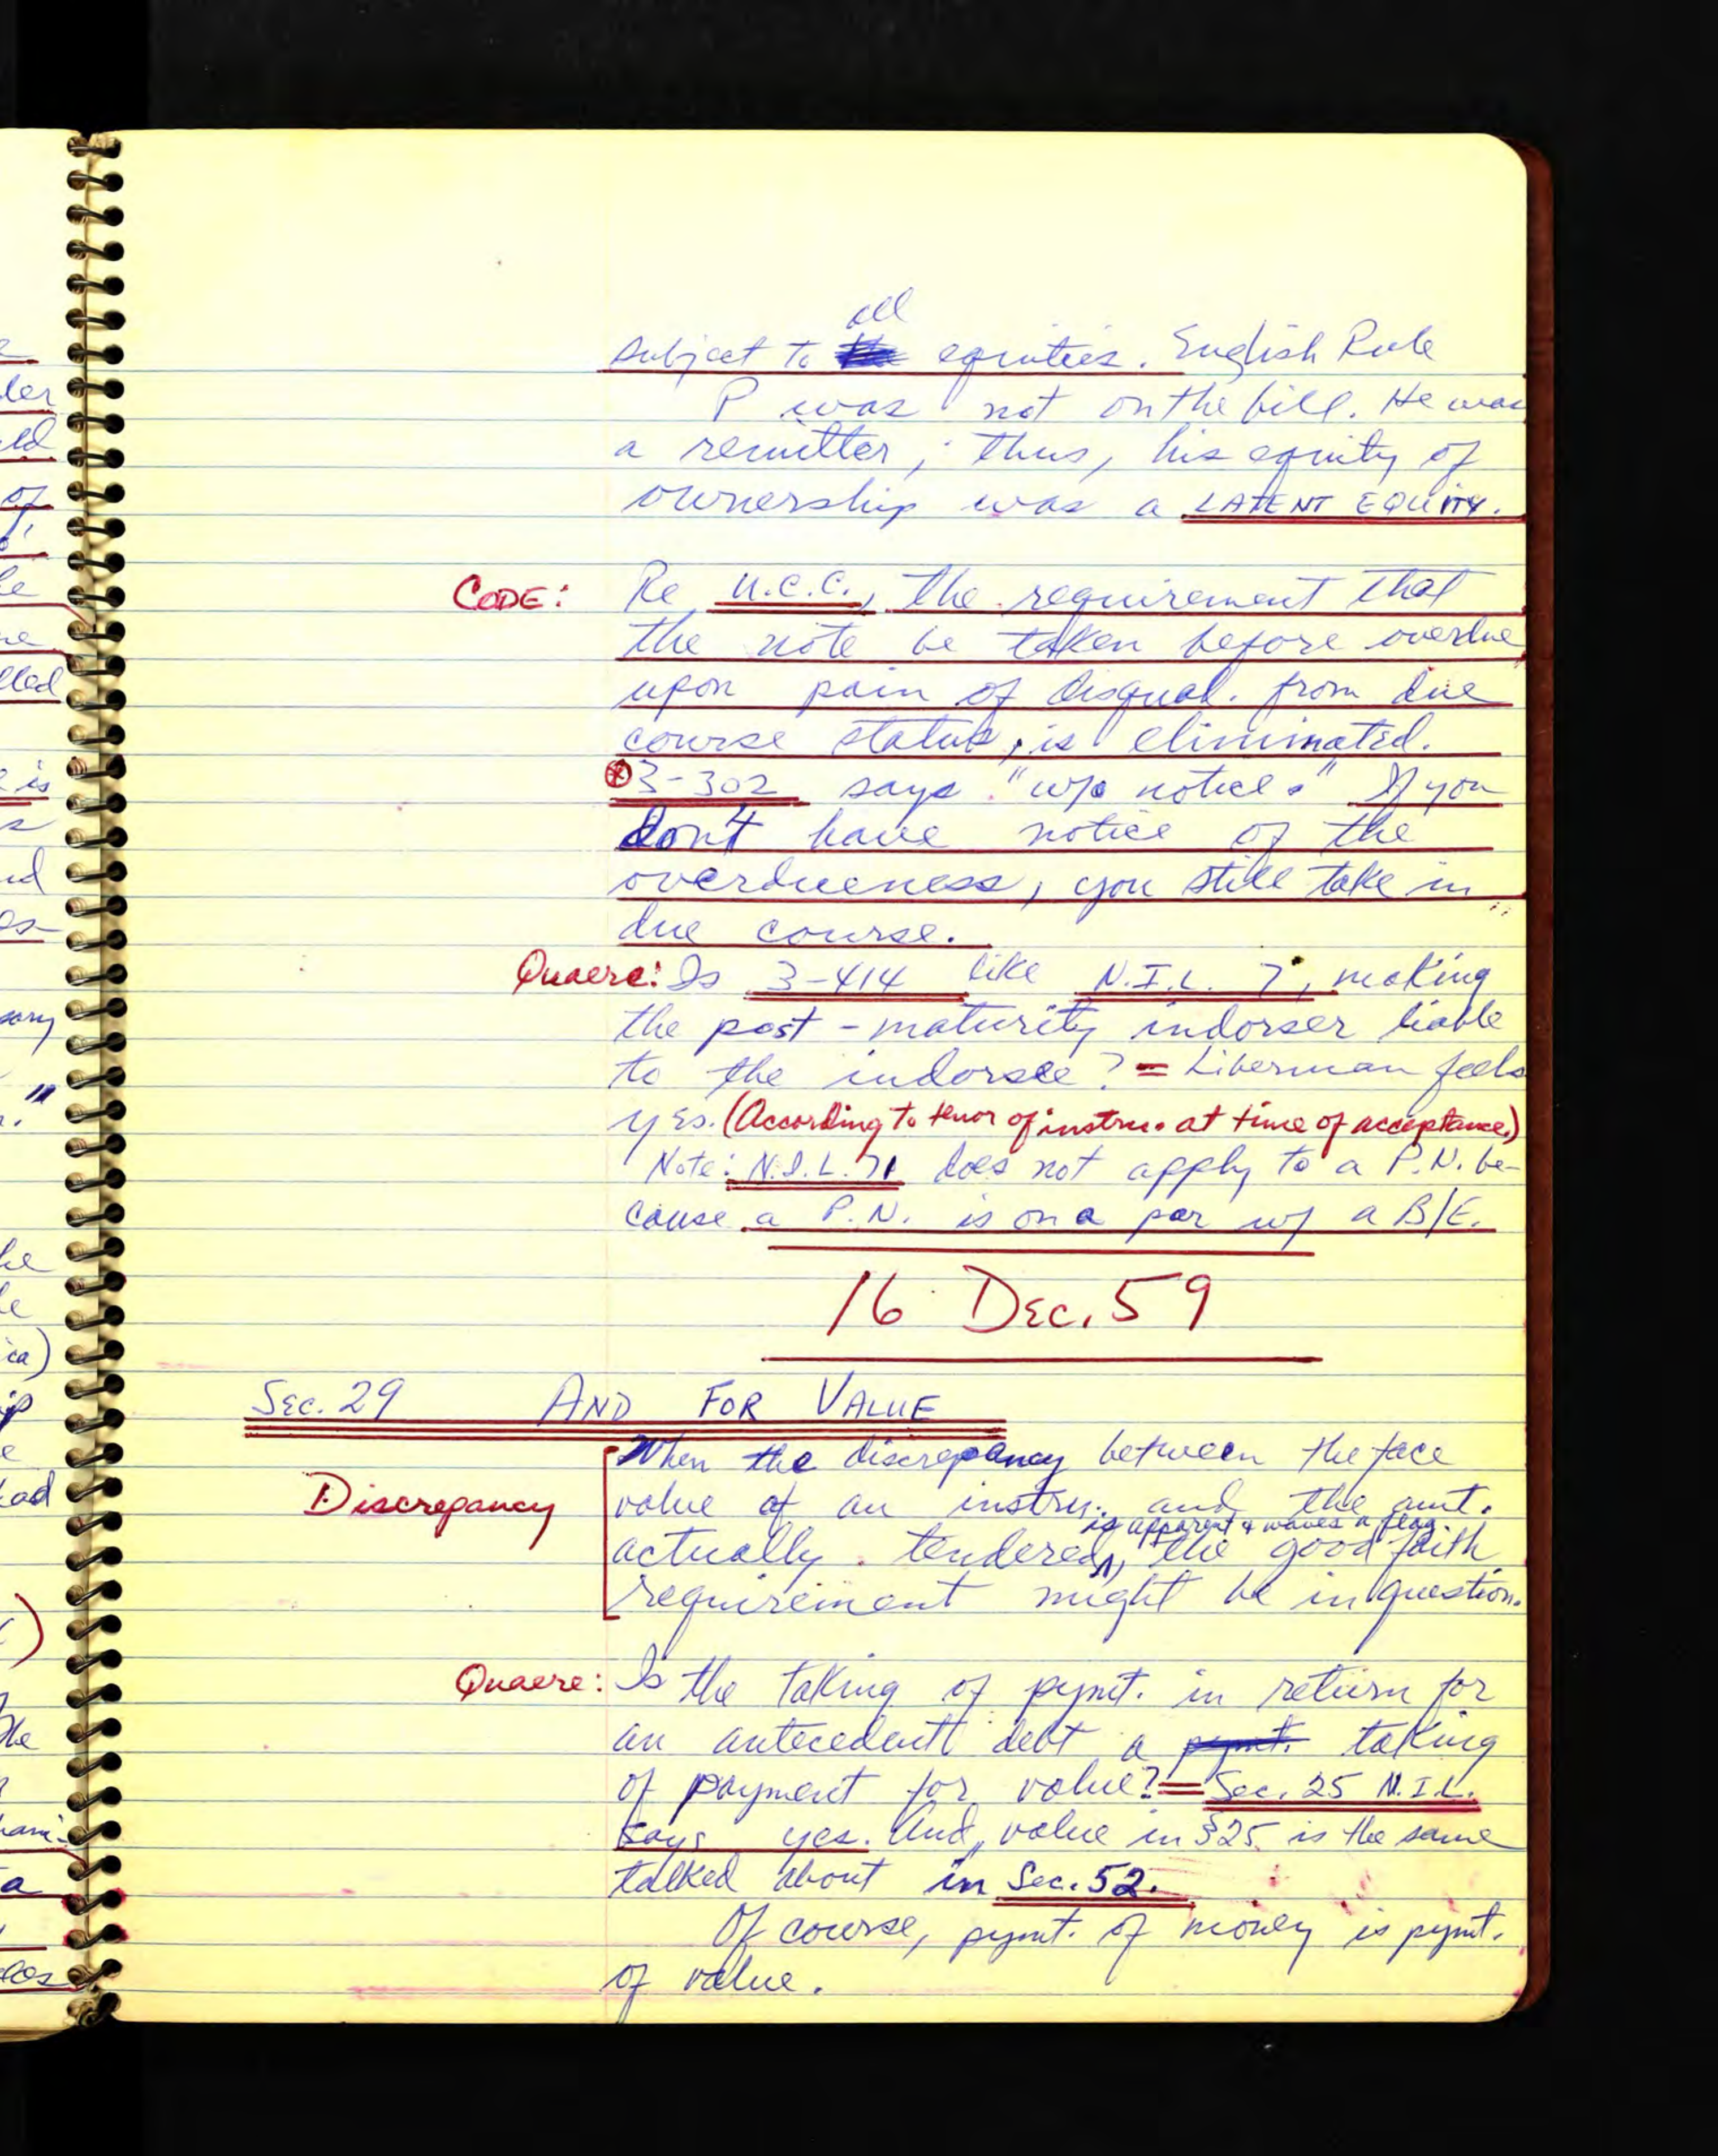 all
subject to equities. English Rule
P was not on the bill. He was
a remitter; thus, his equity of
ownership was a LATENT EQUITY.
CODE: Re U.C.C., the requirement that
the note be taken before overdue
upon pain of disqual. from due
course status, is eliminated.
3-302 says "w/o notice." If you
don't have notice of the
overdueness, you still take in
due course.
Quaere: Is 3-414 like N.I.L. 7, making
the post-maturity indorser liable
to the indorsee? = Liberman feels
yes. (According to tenor of instru. at time of acceptance.)
Note: N.I.L. 71 does not apply to a P.N. be-
cause a P.N. is on a par w/ a B/E.
16 Dec. 59
Sec. 29 AND FOR VALUE
When the discrepancy between the face
Discrepancy value of an instru. and the amt.
is apparent & waves a flag
actually tendered, the good faith
requirement might be in question.
Quaere: Is the taking of pymt. in return for
an antecedent debt a pymt. taking
of payment for value? = Sec. 25 N.I.L.
says yes. And, value in §25 is the same
talked about in Sec. 52.
Of course, pymt. of money is pymt.
of value.